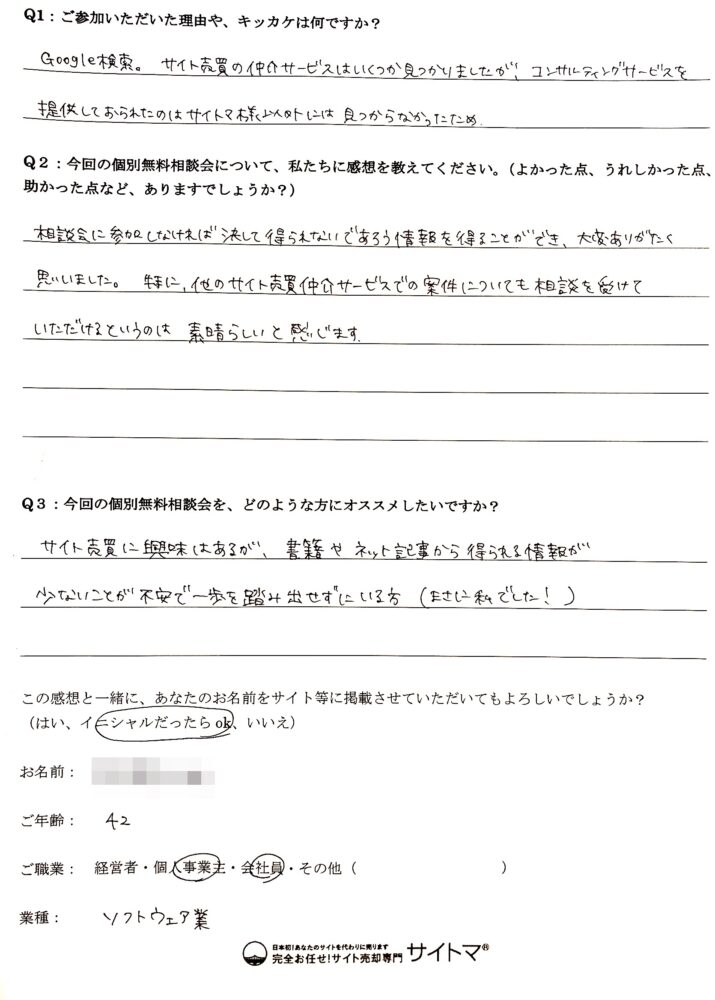 Q1：ご参加いただいた理由や、キッカケは何ですか？
Google検索。サイト売買の仲介サービスはいくつか見つかりましたが、コンサルティングサービスを
提供しておられたのはサイトマ様以外には見つからなかったため.
Q2：今回の個別無料相談会について、私たちに感想を教えてください。（よかった点、うれしかった点、
助かった点など、ありますでしょうか？）
相談会に参加しなければ決して得られないであろう情報を得ることができ、大変ありがたく
思いました。特に、他のサイト売買仲介サービスでの案件についても相談を受けて
いただけるというのは素晴らしいと感じます.
Q3：今回の個別無料相談会を、どのような方にオススメしたいですか？
サイト売買に興味はあるが、書籍やネット記事から得られる情報が
少ないことが不安で一歩を踏み出せずにいる方（まさに私でした！）
この感想と一緒に、あなたのお名前をサイト等に掲載させていただいてもよろしいでしょうか？
（はい、イニシャルだったら ok、いいえ）
お名前：
ご年齢： 42
ご職業： 経営者・個人事業主・会社員・その他（ ）
業種： ソフトウェア業
日本初！あなたのサイトを代わりに売ります
完全お任せ！サイト売却専門 サイトマ®